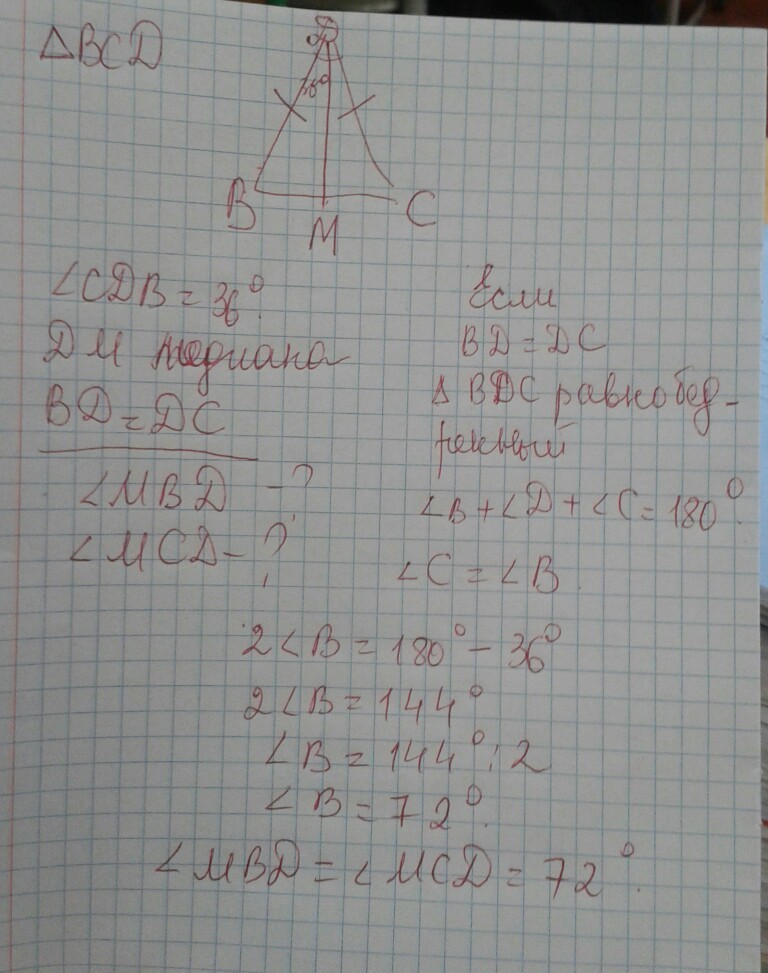 △BCD
D
36°
B
M
C
∠CDB = 36°.
DM медиана
BD = DC
∠MBD - ?
∠MCD - ?
Если
BD = DC
△ BDC равнобед-
ренный
∠B + ∠D + ∠C = 180°.
∠C = ∠B.
2∠B = 180° - 36°
2∠B = 144°
∠B = 144° : 2
∠B = 72°.
∠MBD = ∠MCD = 72°.